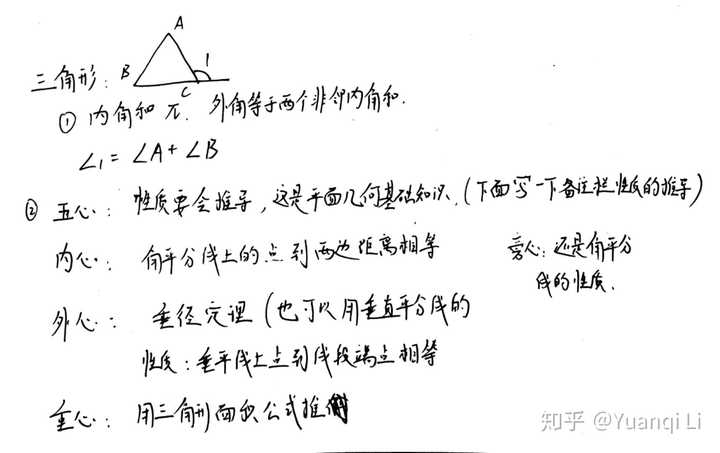 A
三角形： B C 1
① 内角和π. 外角等于两个非邻内角和.
∠1 = ∠A + ∠B
② 五心： 性质要会推导，这是平面几何基础知识.（下面写一下备注栏性质的推导）
内心： 角平分线上的点到两边距离相等
旁心：还是角平分
线的性质.
外心： 垂径定理（也可以用垂直平分线的
性质：垂平线上点到线段端点相等
重心： 用三角形面积公式推
知乎 @Yuanqi Li